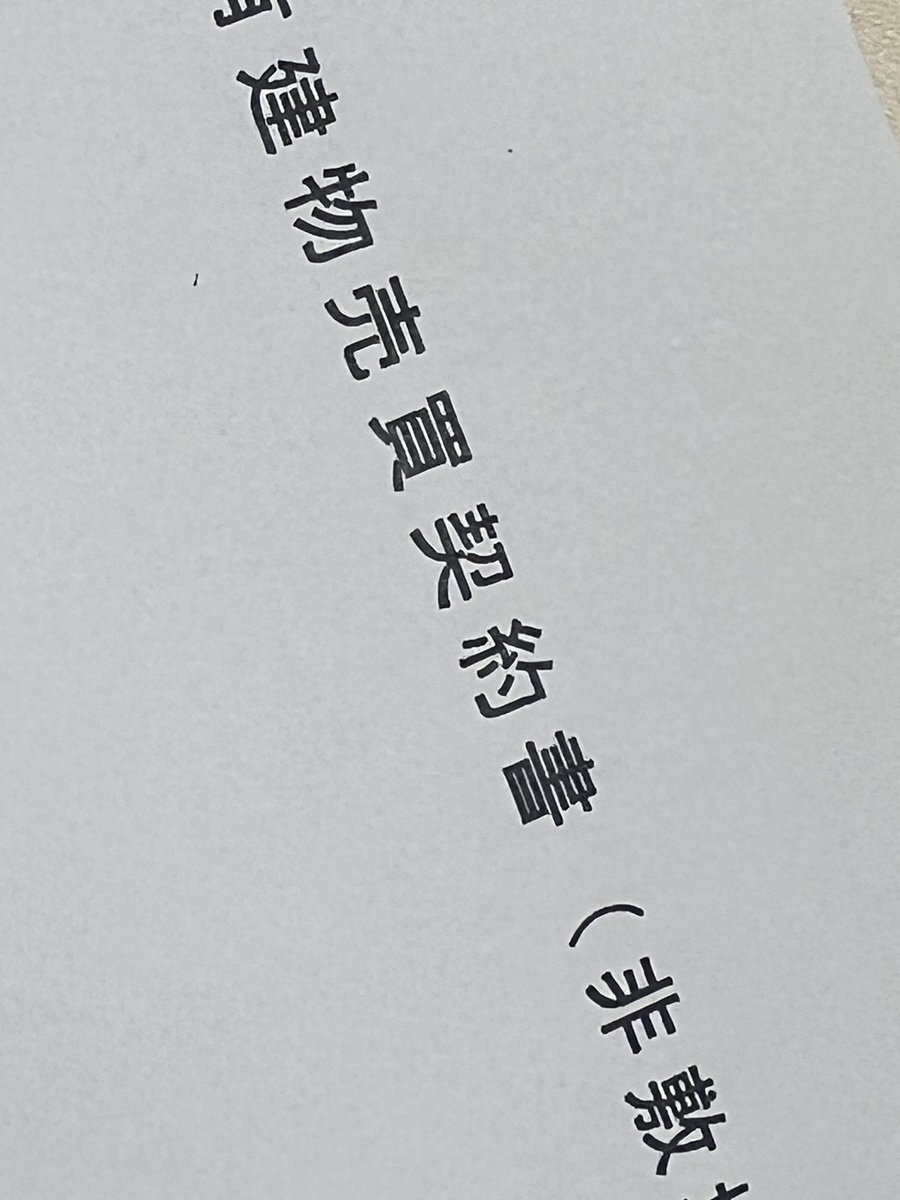 建物売買契約書（非敷